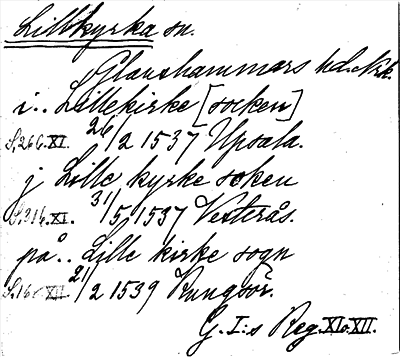 Lillkyrka sn.
Glanshammars hd.
i.. Lillekirke [socken]
S. 266. XI. 26/2 1537 Upsala.
j Lille kyrke soken
S. 316. XI. 31/5 1537 Vesterås.
på.. Lille kirke sogn
XII. 21/2 1539 Kungsör.
G. I:s Reg. XI o. XII.